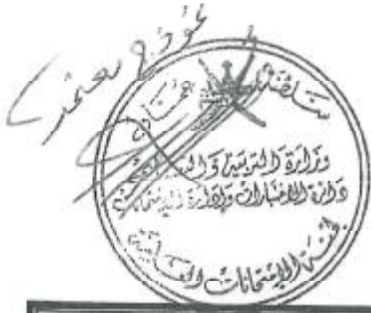 نموذج معتمد
سلطنة عمان
وزارة التربية والتعليم
دائرة الاختبارات وإدارة الامتحانات
لجنة الامتحانات العامة